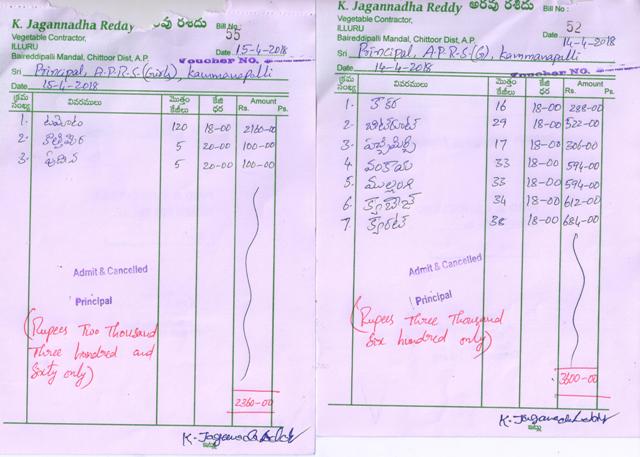 K. Jagannadha Reddy అరవు రశీదు
Vegetable Contractor,
ILLURU
Baireddipalli Mandal, Chittoor Dist, A.P.
Bill No.: 55
Date 15-4-2018
Voucher NO.
Sri Principal, A.P.R.S (Girls), Kammanapalli
Date 15-4-2018
క్రమ సంఖ్య వివరములు మొత్తం కేజీలు కేజీ ధర Amount Rs. Ps.
1. టమోటా 120 18-00 2160-00
2. కొత్తిమీర 5 20-00 100-00
3. పుదీన 5 20-00 100-00
Admit & Cancelled
Principal
(Rupees Two Thousand
Three hundred and
Sixty only)
2360-00
K. Jagannadha Reddy
K. Jagannadha Reddy అరవు రశీదు
Vegetable Contractor,
ILLURU
Baireddipalli Mandal, Chittoor Dist, A.P.
Bill No: 52
Date 14-4-2018
Sri Principal, A.P.R.S (G), Kammanapalli
Voucher NO.
Date 14-4-2018
క్రమ సంఖ్య వివరములు మొత్తం కేజీలు కేజీ ధర Amount Rs. Ps.
1. కాకర 16 18-00 288-00
2. బీట్‌రూట్ 29 18-00 522-00
3. 17 18-00 306-00
4. వంకాయ 33 18-00 594-00
5. ముల్లంగి 33 18-00 594-00
6. క్యాబేజ్ 34 18-00 612-00
7. క్యారెట్ 38 18-00 684-00
Admit & Cancelled
Principal
(Rupees Three Thousand
Six hundred only)
3600-00
K. Jaganadha Reddy